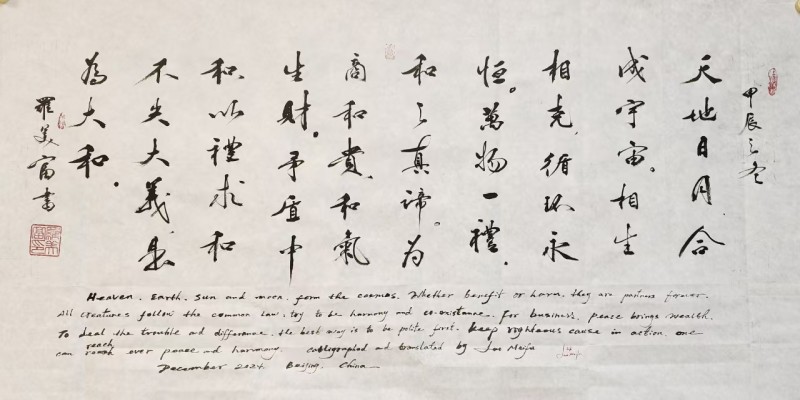 甲辰之冬
天地日月,合
成宇宙。相生
相克,循环永
恒。萬物一禮,
和之真諦。为
商和貴,和氣
生財。矛盾中
和,以禮求和
不失大義,是
為大和。
羅美富書
Heaven, Earth, Sun and moon, form the cosmos. Whether benefit or harm, they are partners forever.
All creatures follow the common law: try to be harmony and co-existance. For business, peace brings wealth.
To deal the trouble and difference, the best way is to be polite first. Keep righteous cause in action, one
can reach ever peace and harmony. calligraphied and translated by Luo Meifu
December 2024. Beijing, China